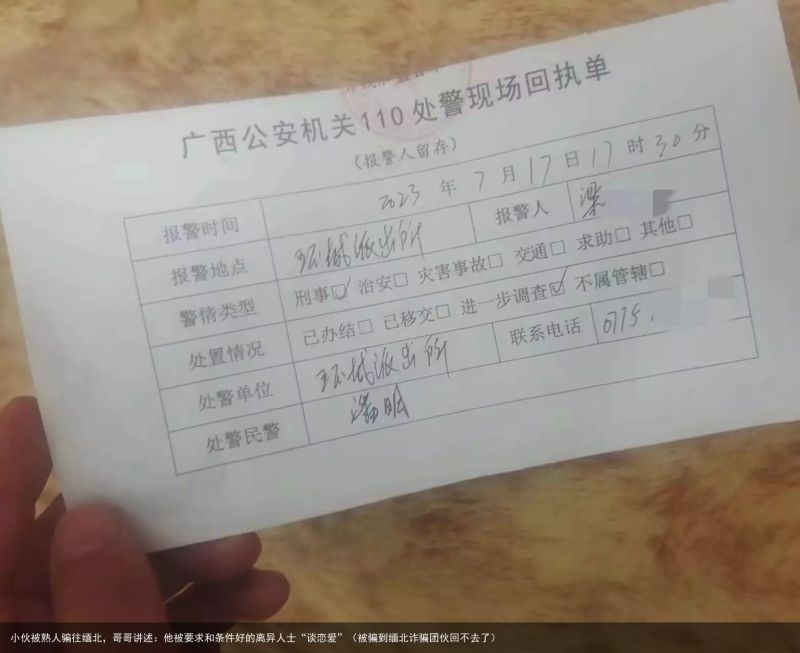 广西公安机关110处警现场回执单
（报警人留存）
报警时间 2023年7月17日17时30分
报警地点 环城派出所 报警人 梁
警情类型 刑事☑ 治安□ 灾害事故□ 交通□ 求助□ 其他□
处置情况 已办结□ 已移交□ 进一步调查☑ 不属管辖□
处警单位 环城派出所 联系电话 0775
处警民警
小伙被熟人骗往缅北，哥哥讲述：他被要求和条件好的离异人士“谈恋爱”（被骗到缅北诈骗团伙回不去了）